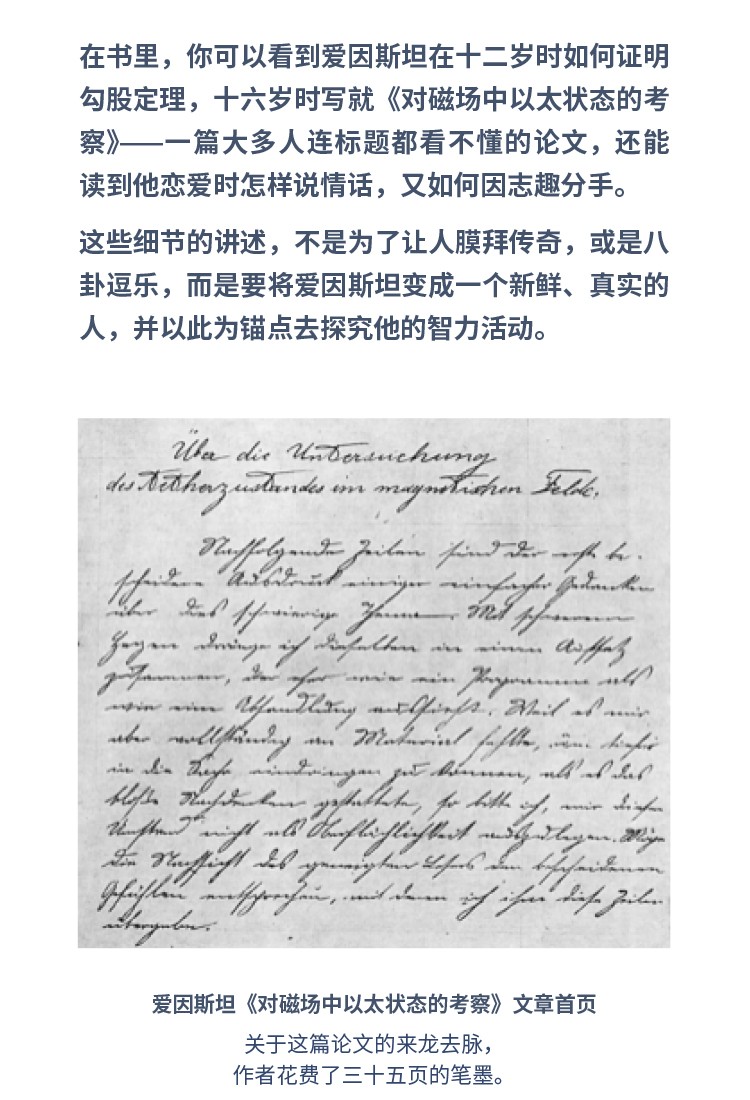 在书里，你可以看到爱因斯坦在十二岁时如何证明
勾股定理，十六岁时写就《对磁场中以太状态的考
察》——一篇大多人连标题都看不懂的论文，还能
读到他恋爱时怎样说情话，又如何因志趣分手。
这些细节的讲述，不是为了让人膜拜传奇，或是八
卦逗乐，而是要将爱因斯坦变成一个新鲜、真实的
人，并以此为锚点去探究他的智力活动。
Über die Untersuchung
des Aetherzustandes im magnetischen Felde.
Nachfolgende Zeilen sind der erste be-
scheidene Ausdruck einiger einfacher Gedanken
über dies schwierige Thema. Mit schwerem
Herzen dränge ich dieselben in einen Aufsatz
zusammen, der eher wie ein Programm als
wie eine Abhandlung aussieht. Weil es mir
aber vollständig an Material fehlte, um tiefer
in die Sache eindringen zu können, als es das
bloße Nachdenken gestattete, so bitte ich, mir diesen
Umstand nicht als Oberflächlichkeit auszulegen. Möge
die Nachsicht des geneigten Lesers den bescheidenen
Gefühlen entsprechen, mit denen ich ihm diese Zeilen
übergebe.
爱因斯坦《对磁场中以太状态的考察》文章首页
关于这篇论文的来龙去脉，
作者花费了三十五页的笔墨。